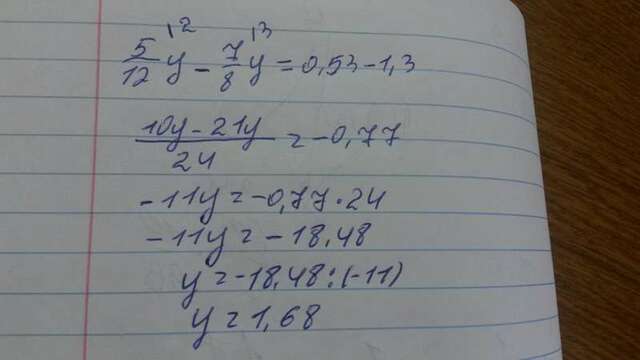 5/12 \2 y - 7/8 \3 y = 0,53 - 1,3
10y - 21y / 24 = -0,77
-11y = -0,77 · 24
-11y = -18,48
y = -18,48 : (-11)
y = 1,68